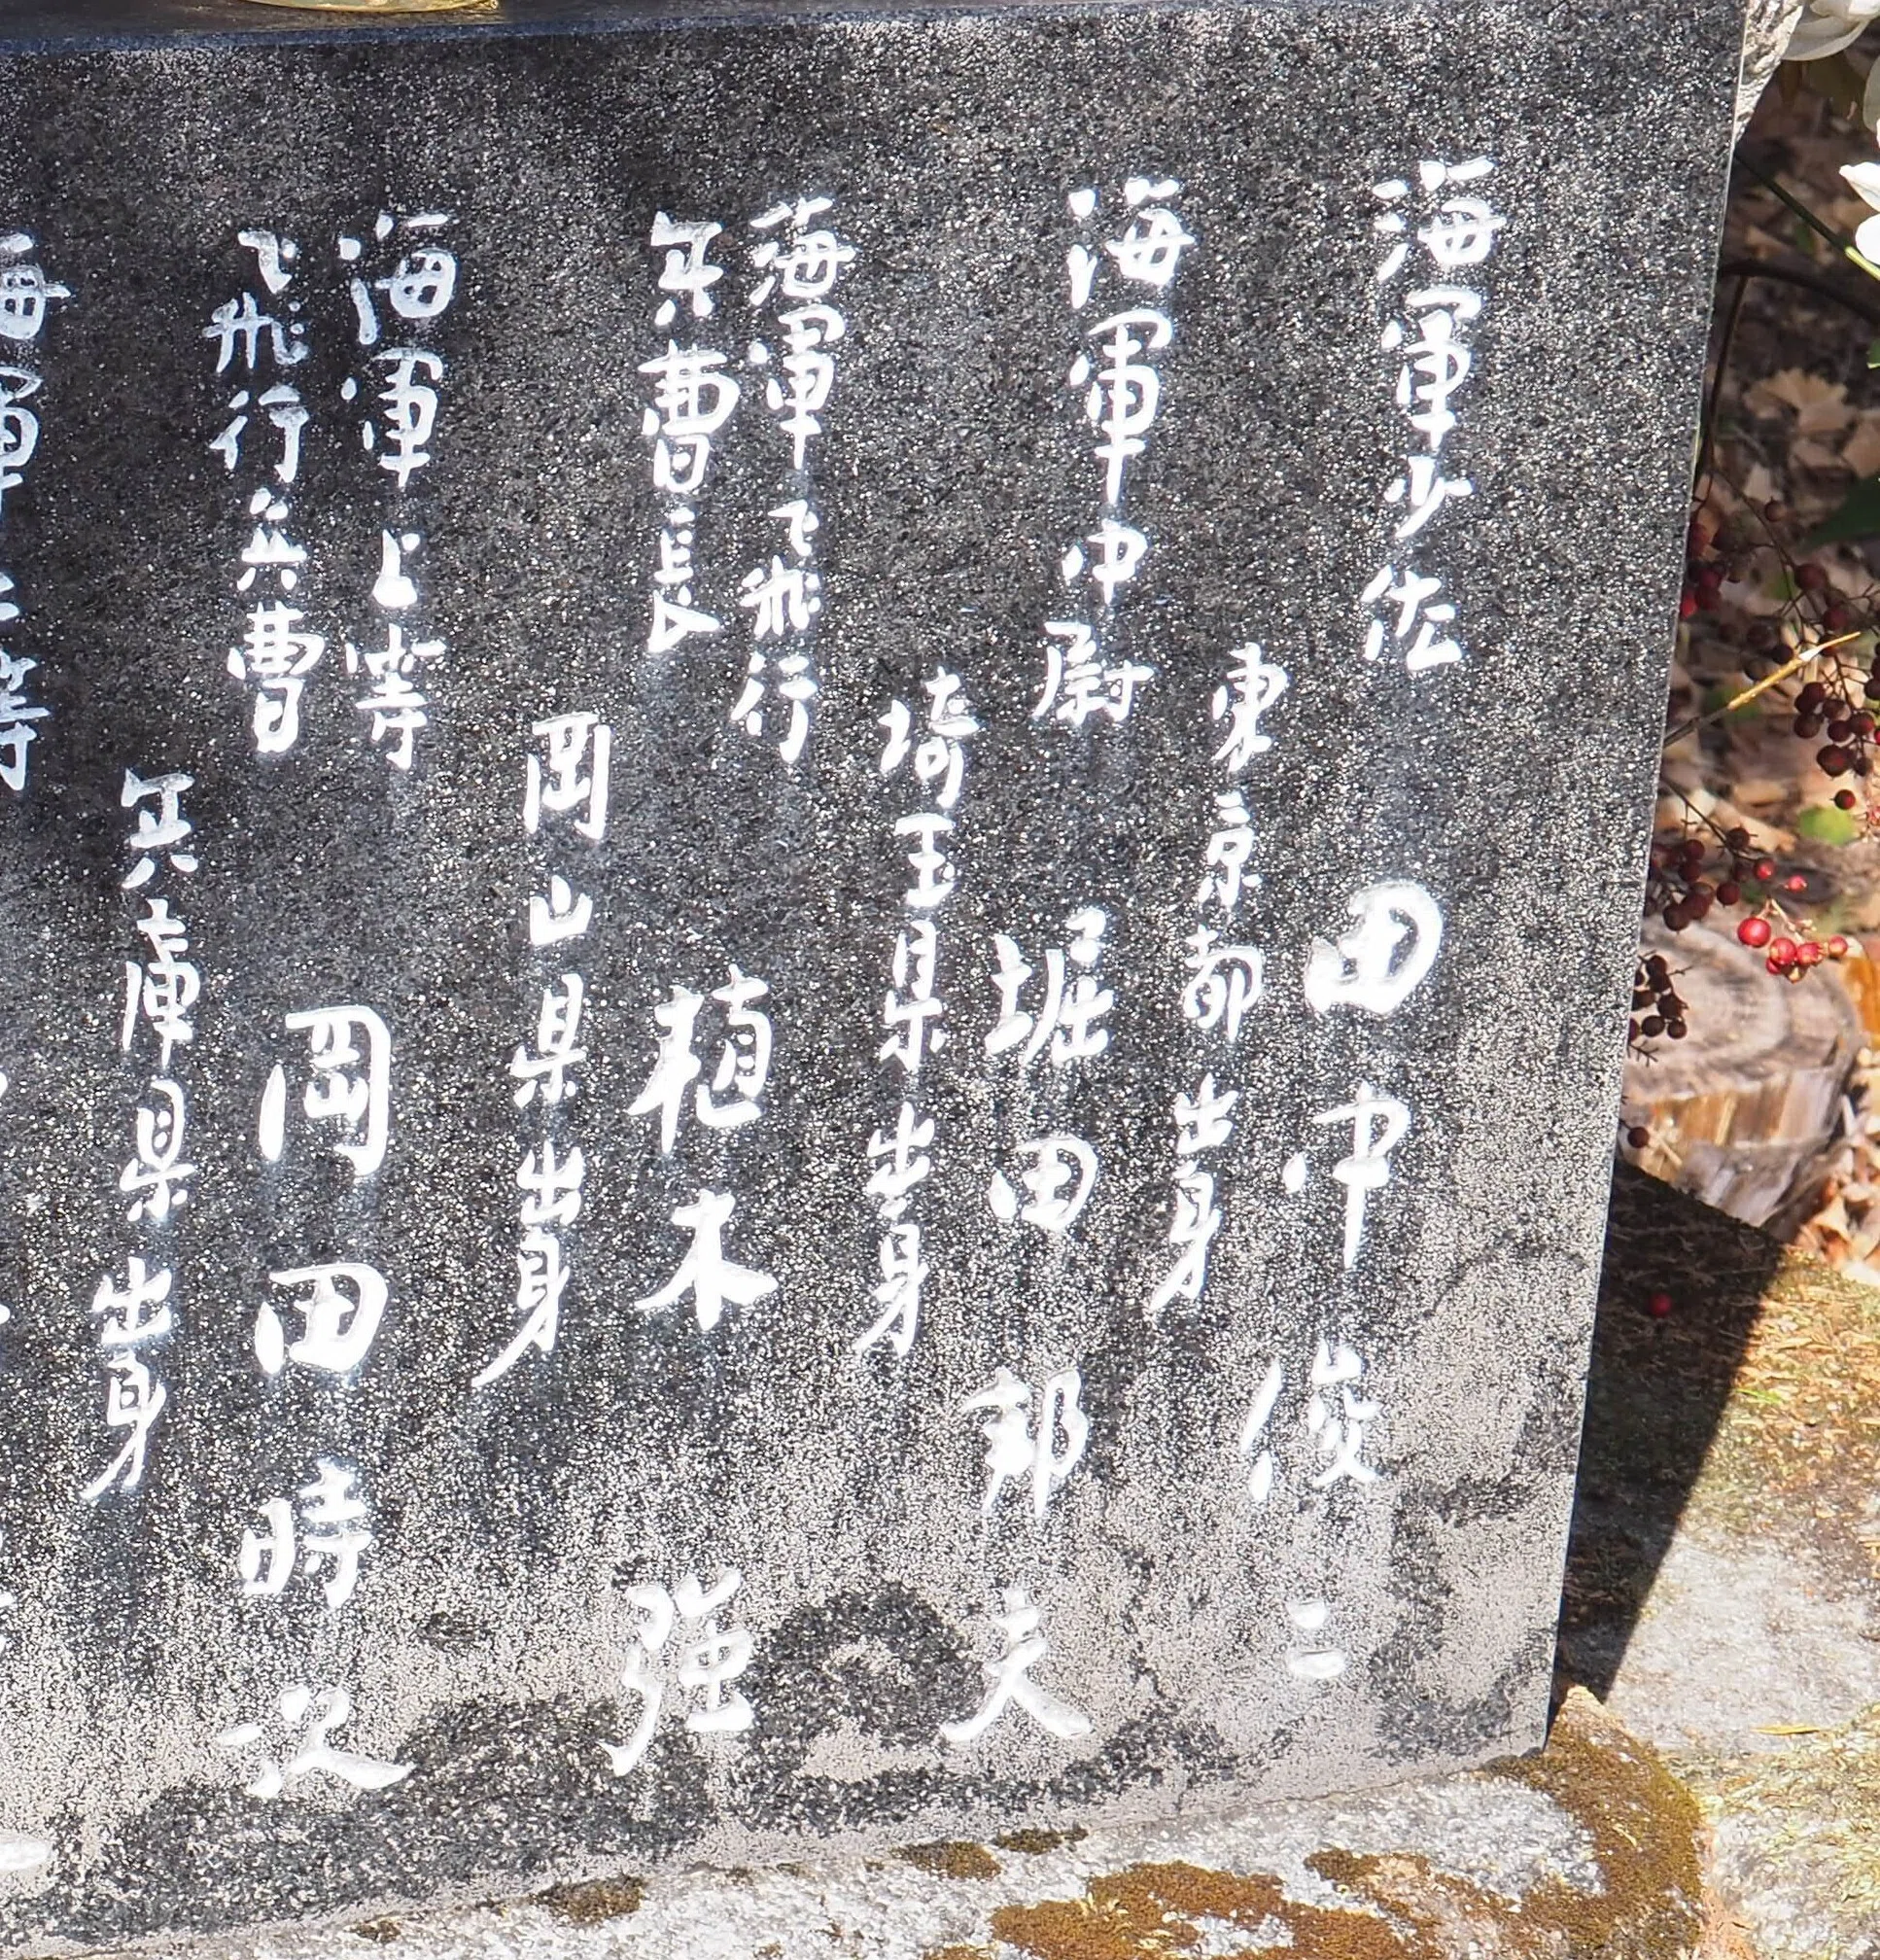 海軍少佐 田中俊三
東京都出身
海軍中尉 堀田邦夫
埼玉県出身
海軍飛行
兵曹長 植木強
岡山県出身
海軍上等
飛行兵曹 岡田時次
兵庫県出身
海軍